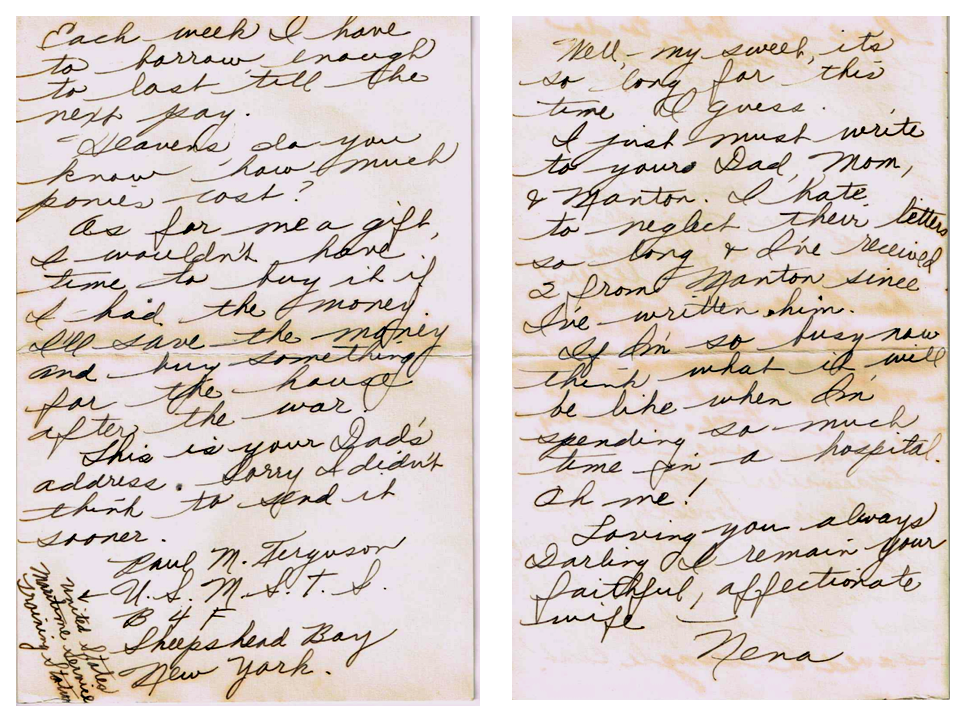 Each week I have
to borrow enough
to last till the
next pay.
"Heavens" do you
know how much
ponies cost?
As for me a gift,
I wouldn't have
time to buy it if
I had the money
I'll save the money
and buy something
for the house
after the war.
This is your Dad's
address. Sorry I didn't
think to send it
sooner.
Paul M. Ferguson
U. S. M. S. T. S.
B 4 F
Sheepshead Bay
New York.
United States
Maritime Service
Training Station
Well, my sweet, its
so long for this
time I guess.
I just must write
to yours Dad, Mom,
& Manton. I hate
to neglect their letters
so long & I've received
2 from Manton since
I've written him.
If I'm so busy now
think what it will
be like when I'm
spending so much
time in a hospital.
Oh me!
Loving you always
Darling I remain your
faithful, affectionate
wife
Nena